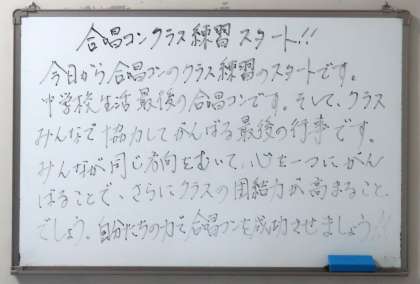 合唱コンクラス練習スタート!!
今日から合唱コンのクラス練習のスタートです。
中学校生活最後の合唱コンです。そして、クラス
みんなで協力してがんばる最後の行事です。
みんなが同じ方向をむいて、心を一つにがん
ばることで、さらにクラスの団結力が高まること
でしょう。自分たちの力で合唱コンを成功させましょう!!